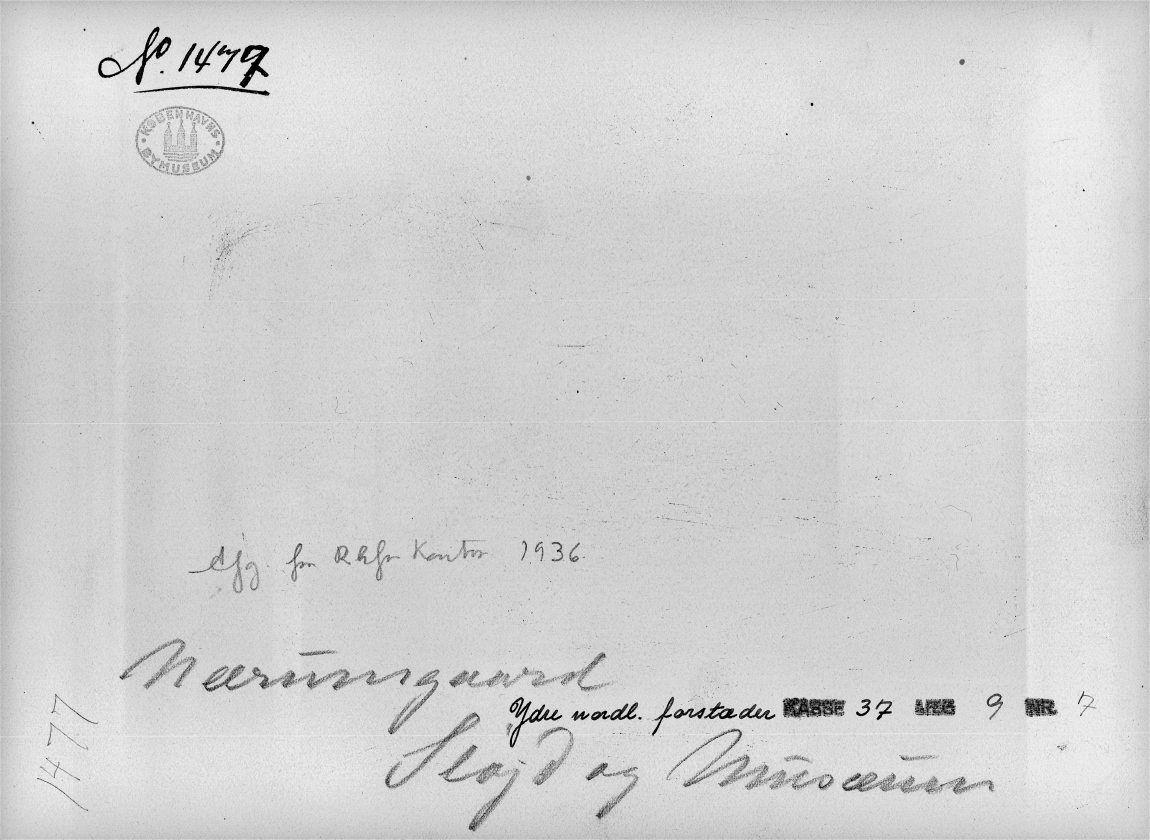 No. 1477
KØBENHAVNS BYMUSEUM
Afg. fra Kontor 1936
Nærumgaard
Ydre nordl. forstæder KASSE 37 LÆG 9 NR. 7
Sløjd og Museum
1477